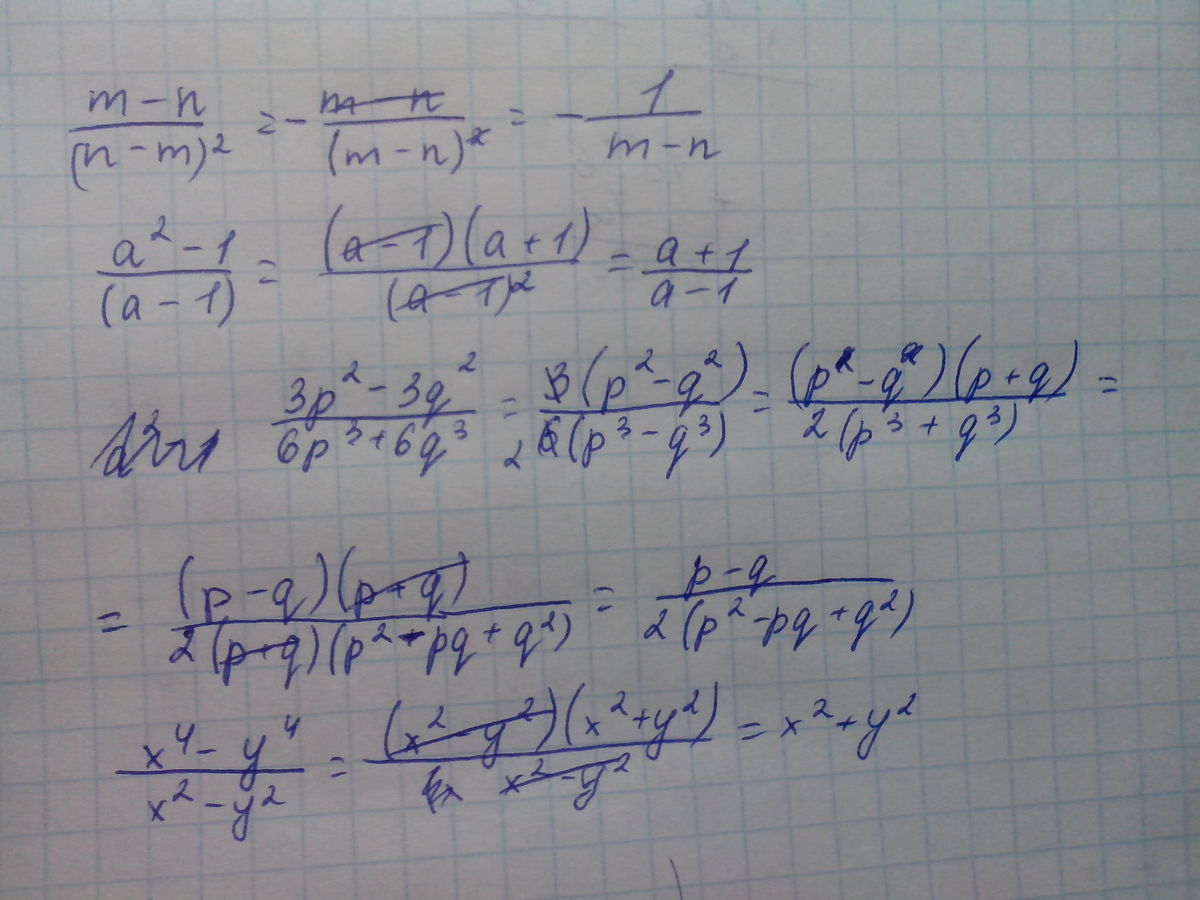 (m-n)/(n-m)² = -(m-n)/(m-n)² = -1/(m-n)
(a²-1)/(a-1) = (a-1)(a+1)/(a-1)² = (a+1)/(a-1)
(3p²-3q²)/(6p³+6q³) = 3(p²-q²)/2 6(p³-q³) = (p²-q²)(p+q)/2(p³+q³) =
= (p-q)(p+q)/2(p+q)(p²-pq+q²) = (p-q)/2(p²-pq+q²)
(x⁴-y⁴)/(x²-y²) = (x²-y²)(x²+y²)/(x²-y²) = x²+y²